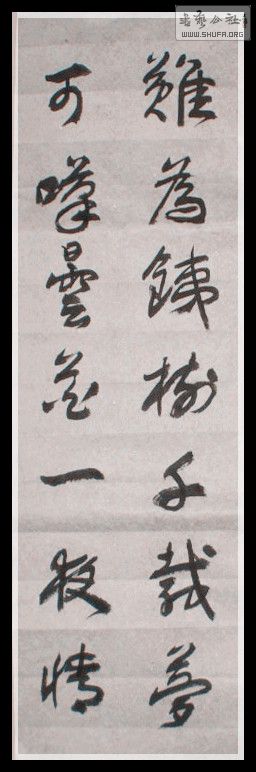 難為銕樹千載夢
可嘆曇花一夜情
書藝公社
WWW.SHUFA.ORG